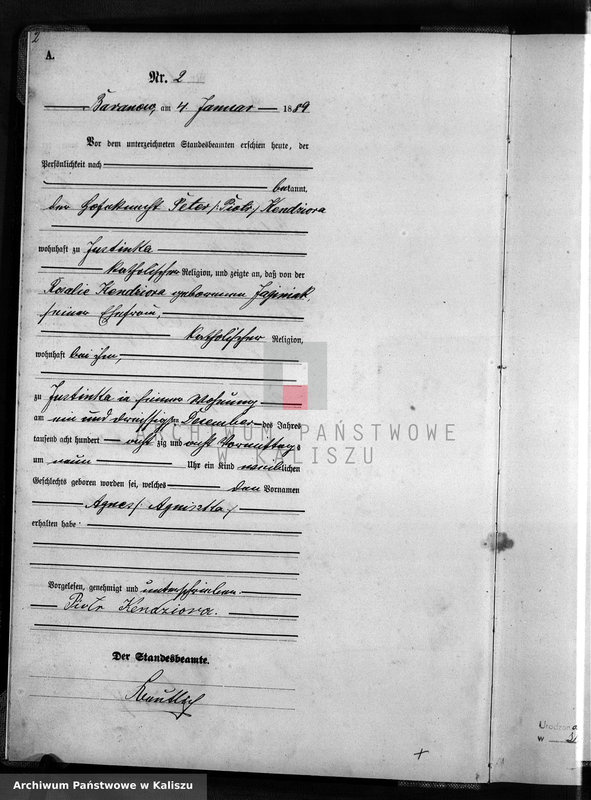 2
A.
Nr. 2
Baranow, am 4 Januar 1889
Vor dem unterzeichneten Standesbeamten erschien heute, der
Persönlichkeit nach
bekannt,
der Hofeknecht Peter /: Piotr :/ Kendziora
wohnhaft zu Justinka
katholischer Religion, und zeigte an, daß von der
Rosalie Kendziora geborenen
seiner Ehefrau,
katholischer Religion,
wohnhaft bei ihm,
zu Justinka in seiner Wohnung
am ein und dreißigsten December des Jahres
tausend acht hundert acht zig und acht Vormittags
um neun Uhr ein Kind weiblichen
Geschlechts geboren worden sei, welches den Vornamen
Agnes /: Agnisetka :/
erhalten habe.
Vorgelesen, genehmigt und unterschrieben.
Piotr Kendziora.
Der Standesbeamte.
ARCHIWUM PAŃSTWOWE
W KALISZU
Urodzona
w
Archiwum Państwowe w Kaliszu